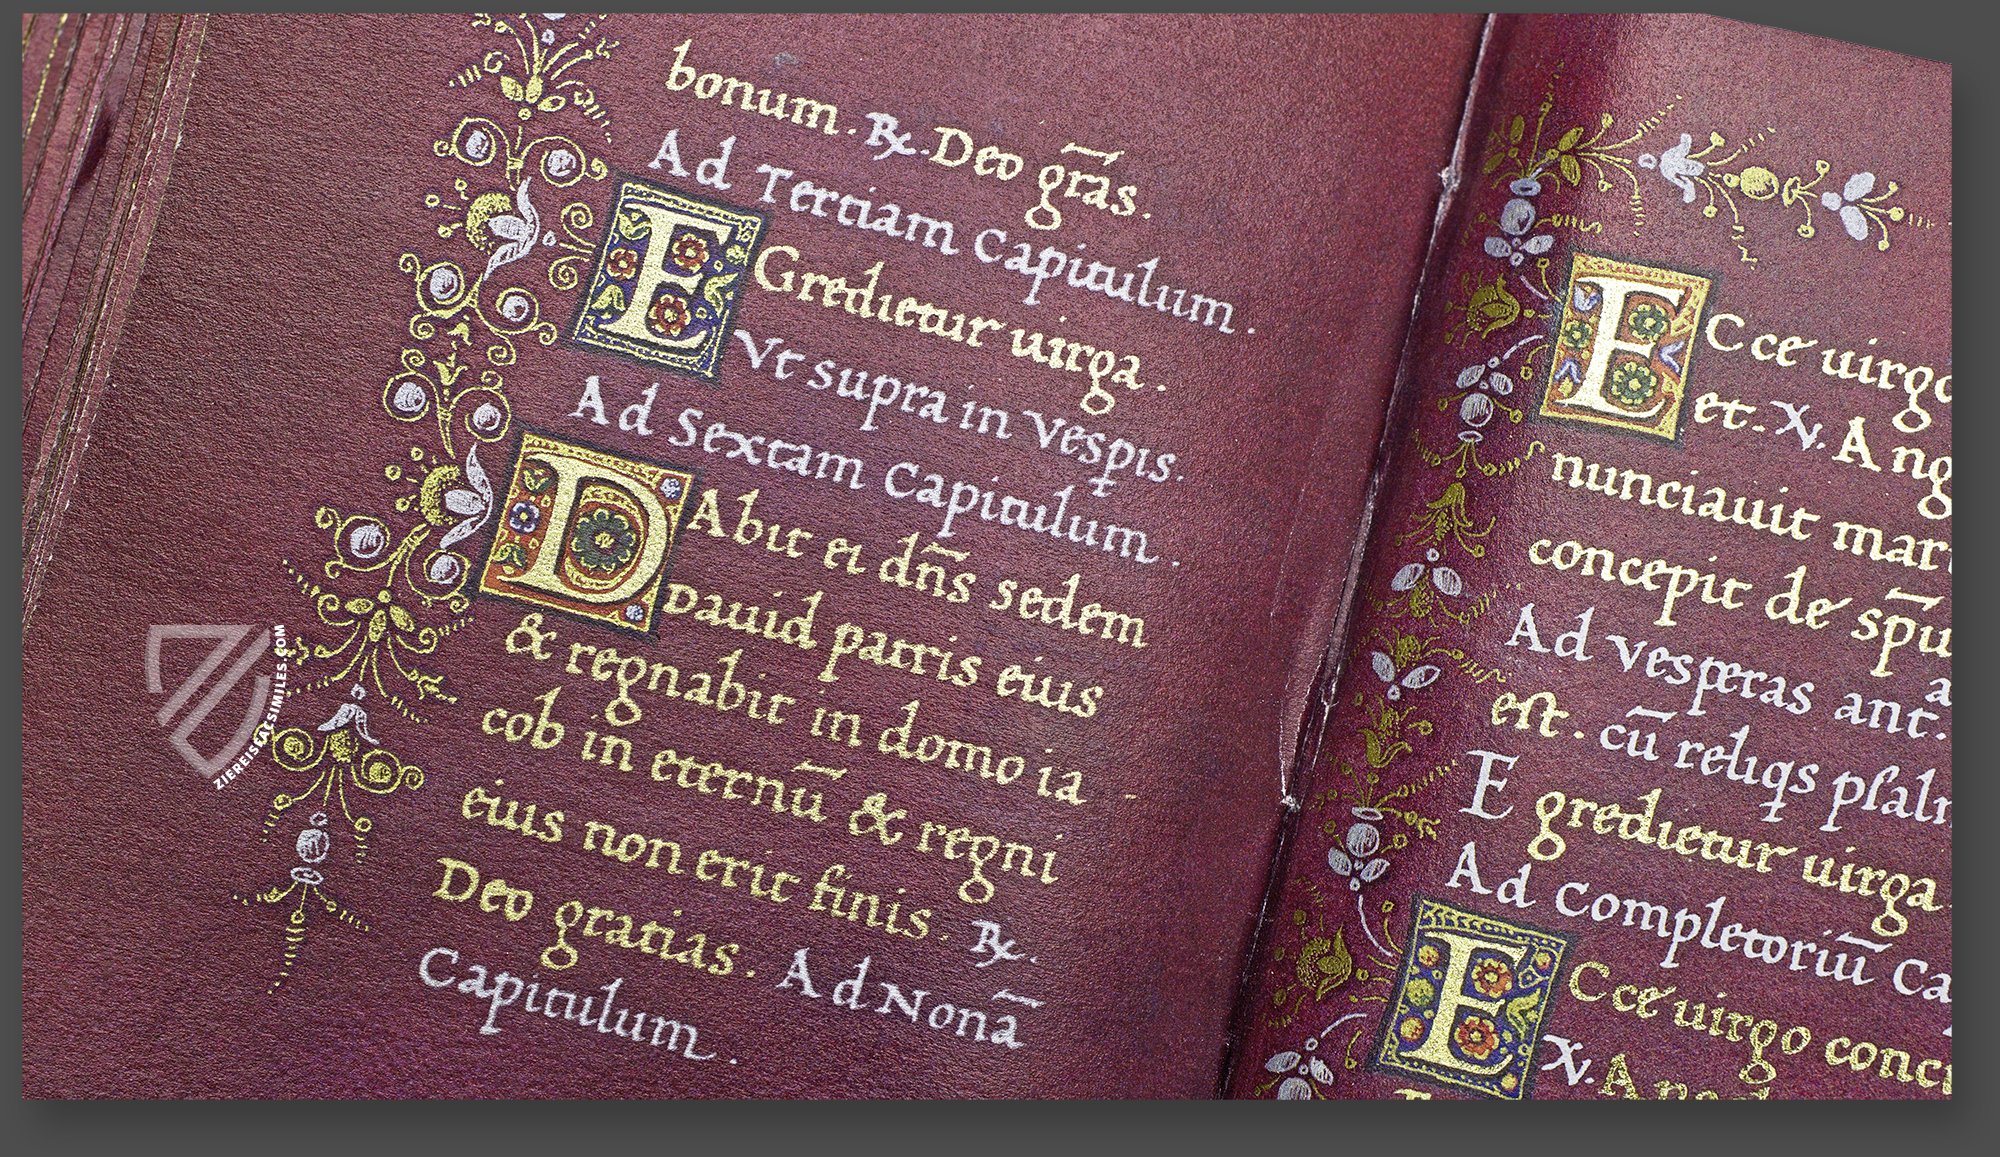 bonum. ℞. Deo grās.
Ad Tertiam Capitulum.
EGredietur uirga.
Vt supra in vespis.
Ad Sextam Capitulum.
DAbit ei dn̄s sedem
Dauid patris eius
& regnabit in domo ia
cob in eternū & regni
eius non erit finis. ℞.
Deo gratias. Ad Nonā
Capitulum.
ECce uirgo
et. ℣. Ang
nunciauit mar
concepit de sp̄u
Ad vesperas ant. a
est. cū reliqs psal
Egredietur uirga.
Ad Completoriū Ca
ECce uirgo conci
℣. Ang
ZIEREISFACSIMILES.COM